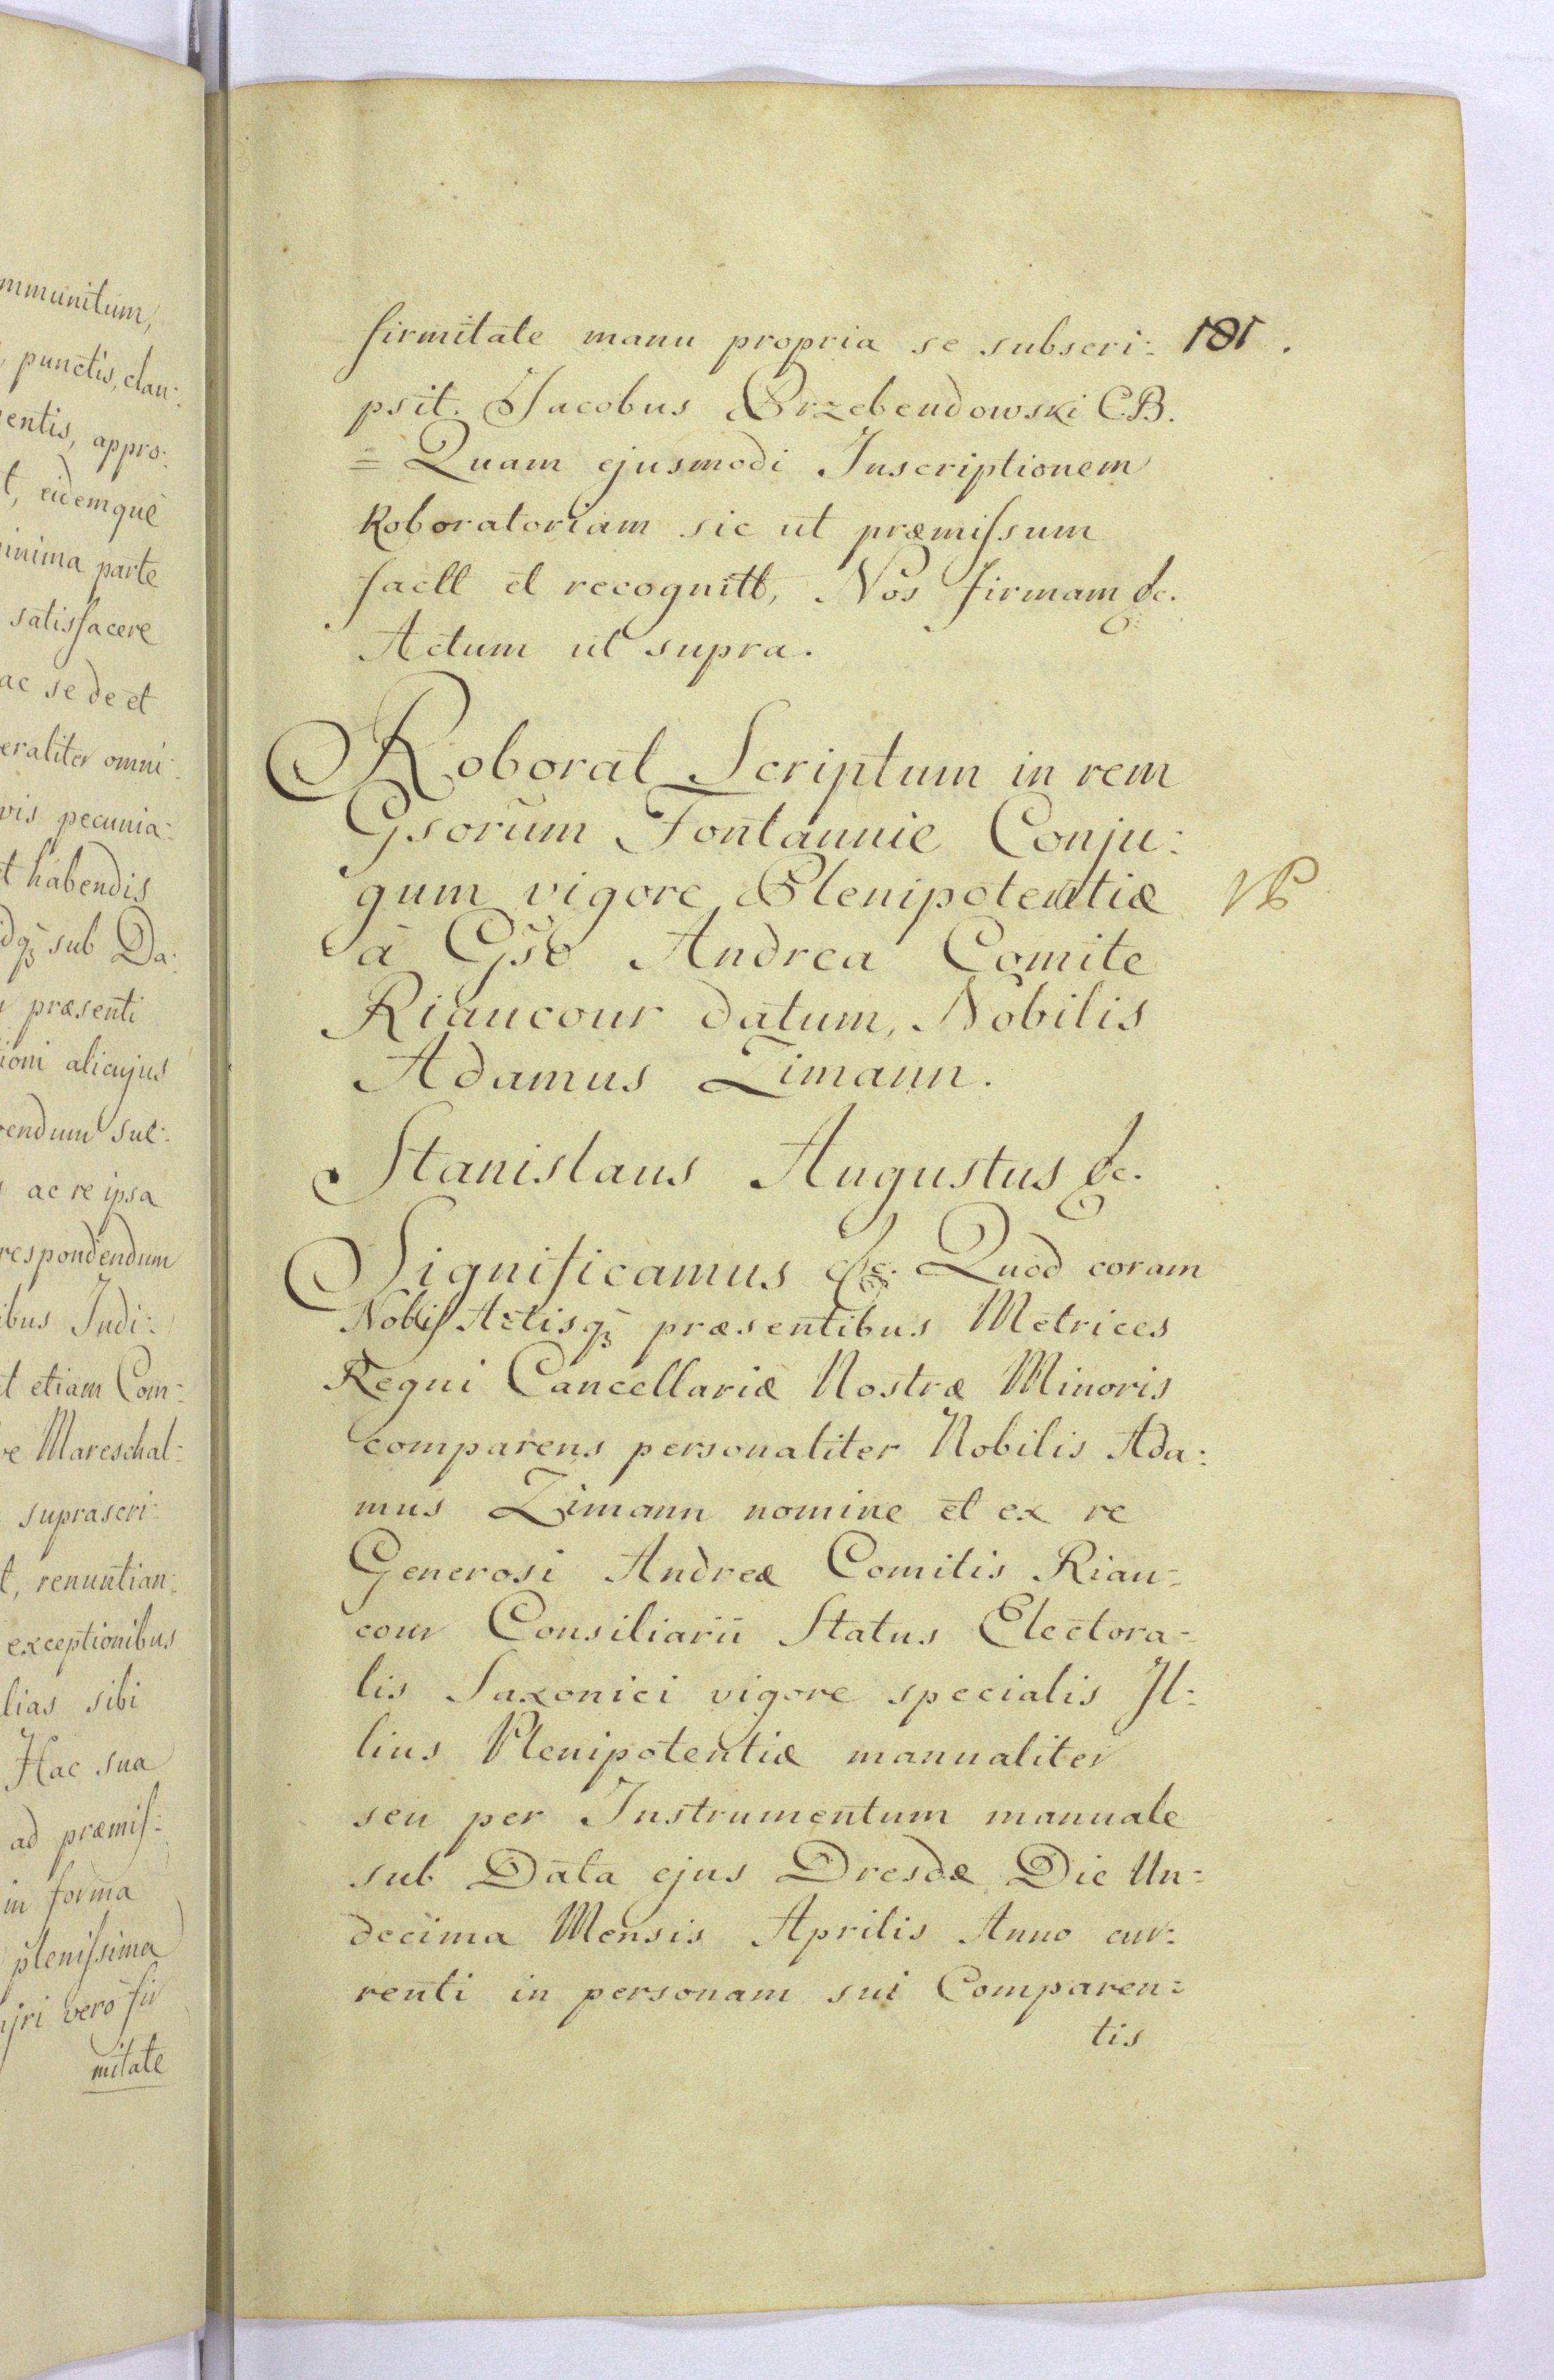 mmunitum,
punctis, clau:
entis, appro:
t, eidemque
inima parte
satisfacere
ac se de et
eraliter omni:
vis pecunia:
t habendis
dq̃ sub Da:
præsenti
ioni alicujus
endum sul:
ac re ipsa
respondendum
ibus Judi:
t etiam Com:
ve Mareschal:
suprascri:
t, renuntian:
exceptionibus
lias sibi
Hac sua
ad præmis:
in forma
plenissima
jri vero fir
mitate
firmitate manu propria se subscri: 181.
psit. Jacobus Przebendowski C.B.
= Quam ejusmodi Inscriptionem
Roboratoriam sic ut præmissum
factt et recognitt, Nos firmam &c.
Actum ut supra.
Roborat Scriptum in rem
Gsorum Fontannie Conju:
gum vigore Plenipotentiæ
à Gso Andrea Comite
Riaucour datum, Nobilis
Adamus Zimann.
Stanislaus Augustus &c.
Significamus &c. Quod coram
Nobis Actisq̃ præsentibus Metrices
Regni Cancellariæ Nostræ Minoris
comparens personaliter Nobilis Ada:
mus Zimann nomine et ex re
Generosi Andreæ Comitis Riau:
cour Consiliarii Status Electora:
lis Saxonici vigore specialis Il:
lius Plenipotentiæ manualiter
seu per Instrumentum manuale
sub Data ejus Dresdæ Die Un:
decima Mensis Aprilis Anno cur:
renti in personam sui Comparen:
tis